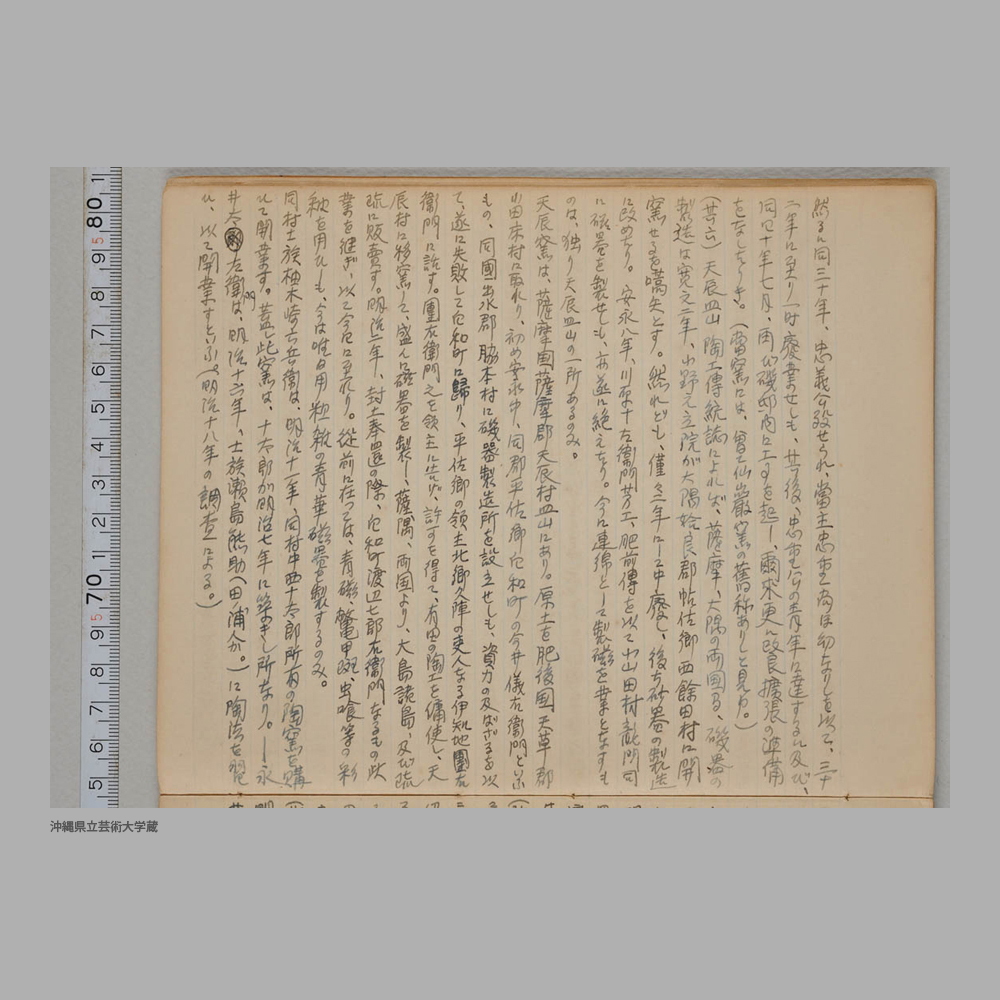 然るに同三十年、忠義公歿せられ、当主忠重公尚ほ幼なりしを以て、三十
二年に至り一時廃業せしも、其後、忠重公の青年に達するに及び、
同四十年七月、再び磯邸内に工を起し、爾来更に改良擴張の準備
をなしたりき。(当窯には、曽て仙巌窯の舊称ありしと見ゆ。)
天辰皿山 陶工傳統誌によれば、薩摩、大隅の両国る、磁器の
製造は寛文二年、小野元立院が大隅姶良郡帖佐郷西餘田村に開
窯せるを嚆矢とす。然れども、僅々三年にして中廃し、後ち砂器の製造
に改めたり。安永八年、川原十左衛門芳工、肥前傳を以て小山田村龍門司
に磁器を製せしも、亦遂に絶えたり。今に連綿として製磁を業となすも
のは、独り天辰皿山の一所あるのみ。
天辰窯は、薩摩国薩摩郡天辰村皿山にあり。原土を肥後国天草郡
小田床村に取れり、初め安永中、同郡平佐郷白和町の今井儀右衛門と云
もの、同国出水郡脇本村に磁器製造所を設立せしも、資力の及ばざるを以
て、遂に失敗して白和町に歸り、平佐郷の領主北郷久陣の吏人なる伊地知團右
衛門に説す。團右衛門之を領主に告げ、許可を得て、有田の陶工を傭使し、天
辰村に移窯して、盛んに磁器を製し、薩隅、両国より、大島諸島、及び琉
球に販売す。明治二年、封土奉還の際、白和町渡辺七郎右衛門なるもの此
業を継ぎ、以て今日に至れり。従前に在つては、青磁、鼈甲斑、虫喰等の彩
釉を用ひしも、今は唯日用粗雑の青華磁器を製するのみ。
同村士族柚木崎士兵衛は、明治十一年、同村中西十太郎所有の陶窯を購
ひて開業す。蓋し此窯は、十太郎が明治七年に築きし所なり。―永
井太左衛門は、明治十六年、士族瀬島熊助(田ノ浦介。)に陶法を習
ひ、以て開業すといふ。(明治十八年の調査による。)
80
9
8
7
6
5
4
3
2
1
70
9
8
7
6
5
沖縄県立芸術大学蔵